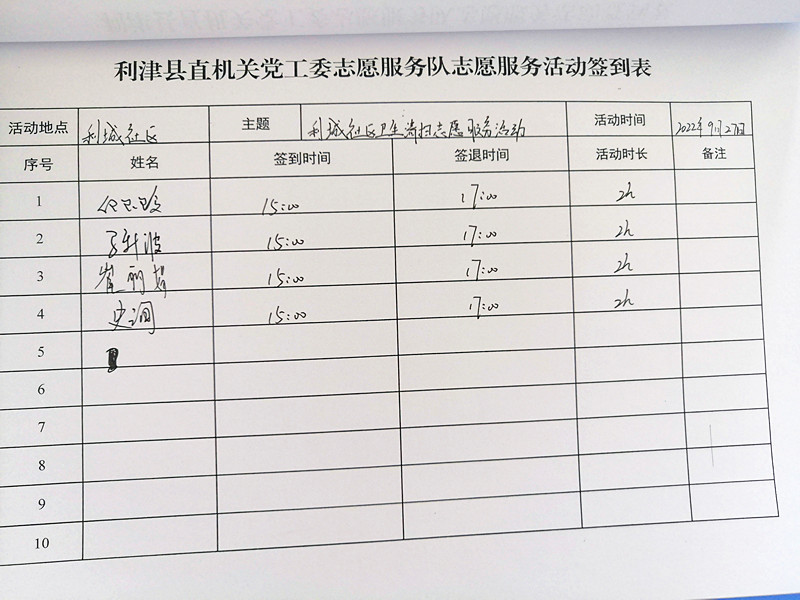 利津县直机关党工委志愿服务队志愿服务活动签到表
活动地点 利城社区 主题 利城社区卫生清扫志愿服务活动 活动时间 2022年9月27日
序号 姓名 签到时间 签退时间 活动时长 备注
1 15:00 17:00 2h
2 15:00 17:00 2h
3 15:00 17:00 2h
4 15:00 17:00 2h
5
6
7
8
9
10